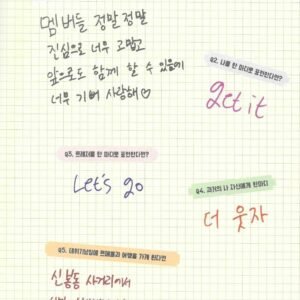 멤버들 정말정말
진심으로 너무 고맙고
앞으로도 함께 할 수 있음에
너무 기뻐 사랑해♡
Q2. 나를 한 마디로 표현한다면?
get it
Q3. 트레저를 한 마디로 표현한다면?
Let's go
Q4. 과거의 나 자신에게 한마디
더 웃자
Q5. 데뷔기념일에 트메들과 여행을 가게 된다면
신봉동 사거리에서